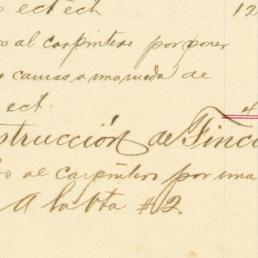 ect ech 12
o al carpintero por poner
camas a una rueda de
ect.
4
strucción de Finc
o al carpintero por una
A la Pta #2.